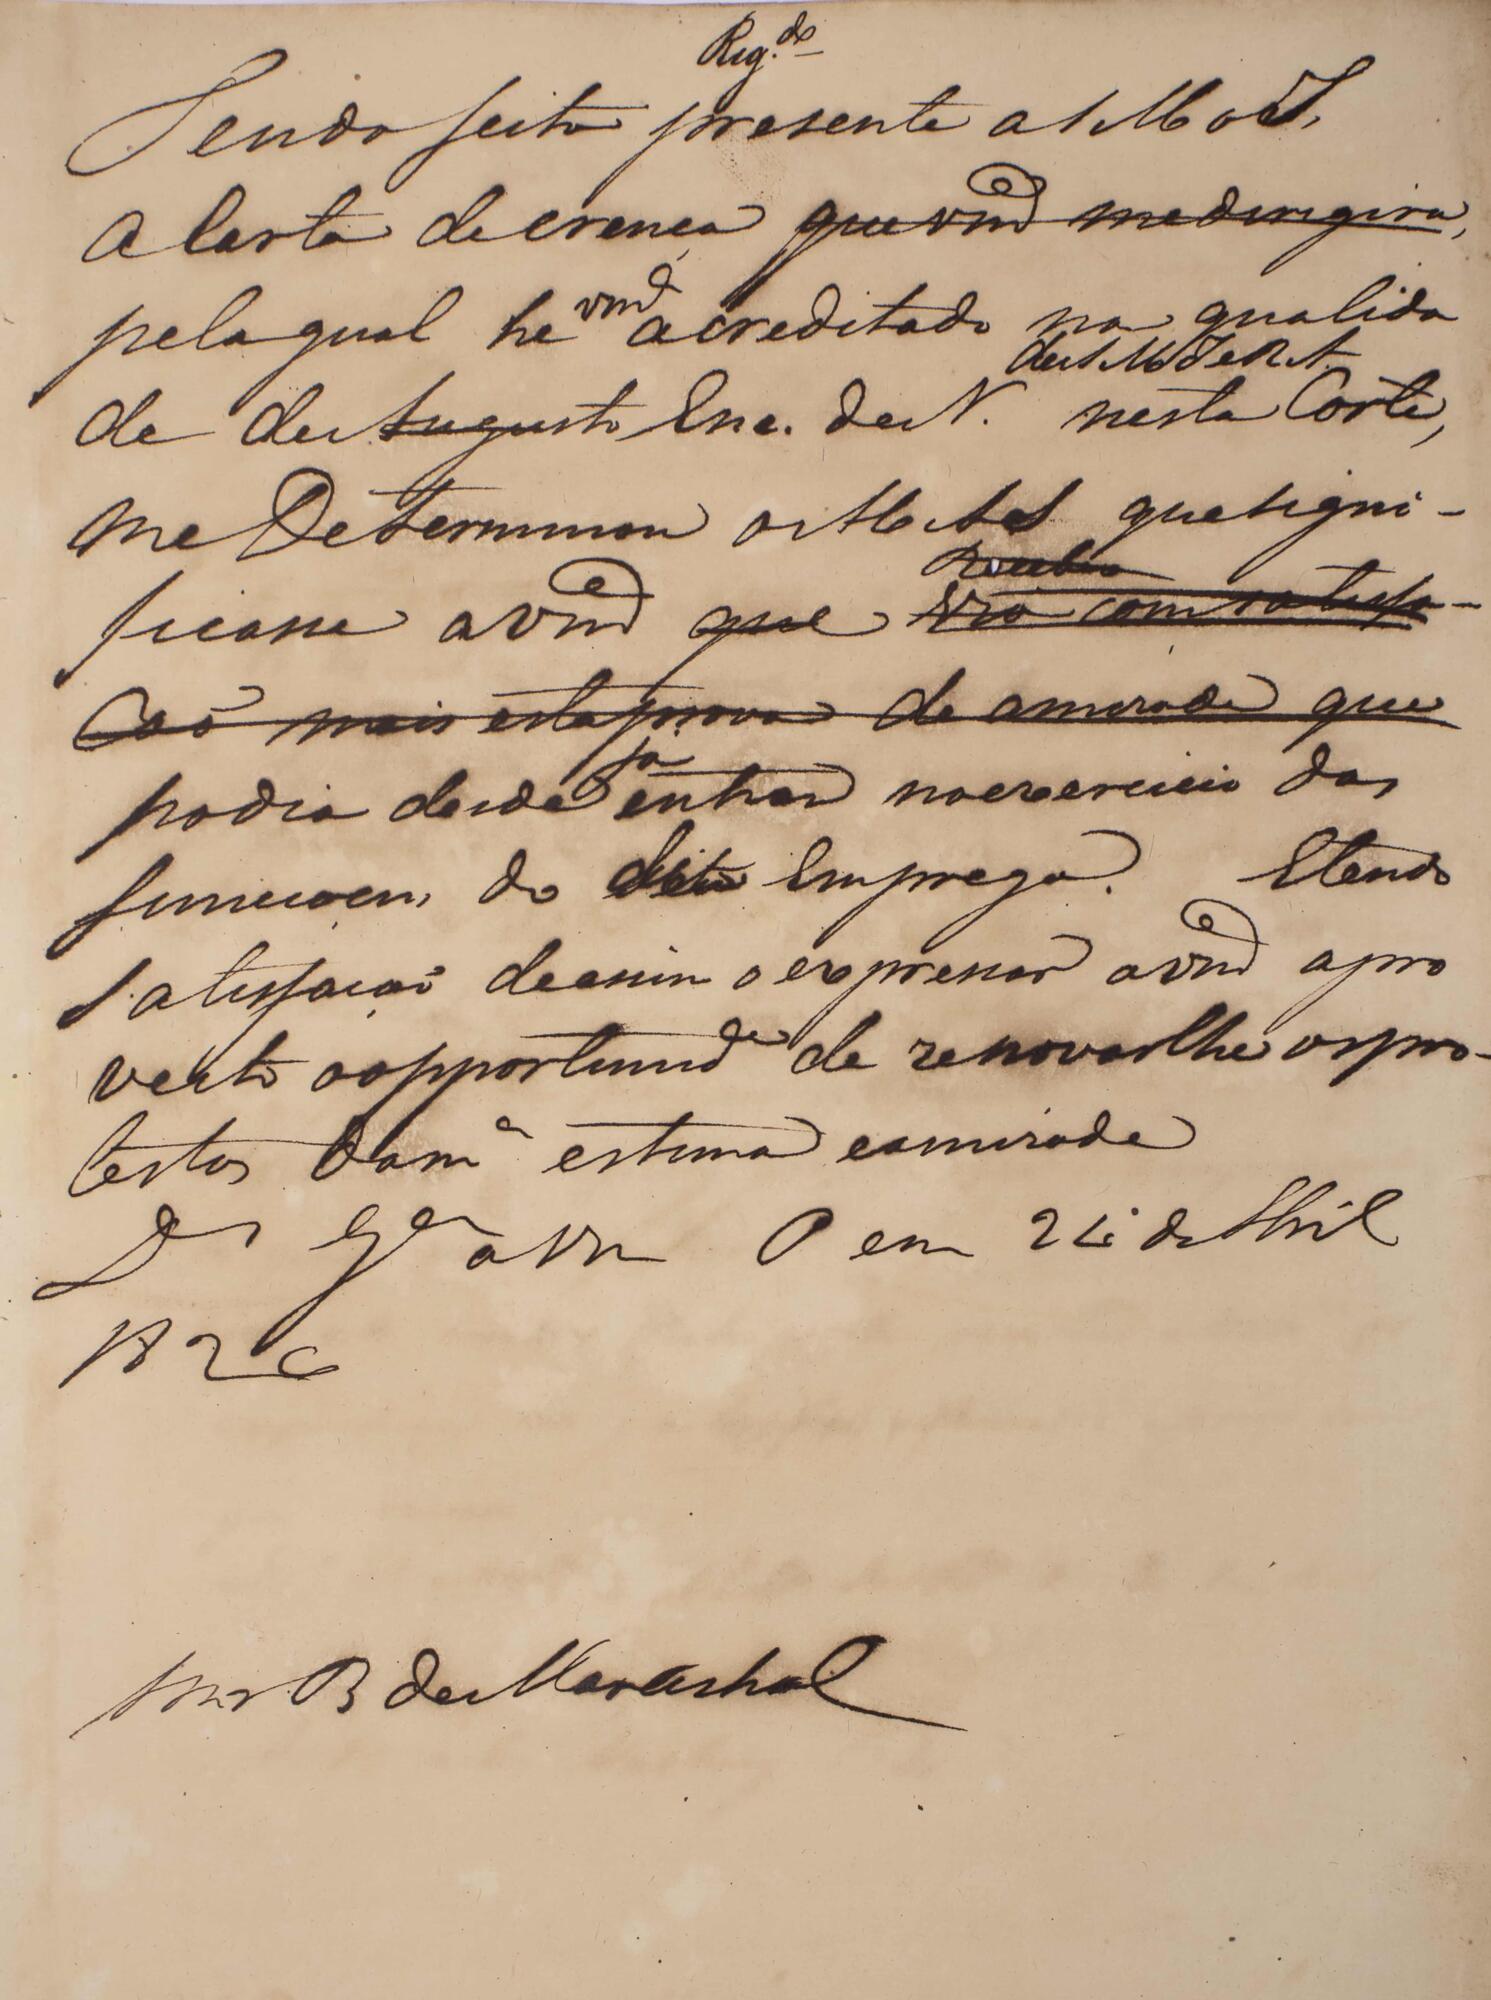 Reg.do
Tendo feito presente a S M o I,
a Carta de crença que vm.ce me dirigira,
pela qual he vm.ce acreditado na qualida
de S M I e R A.
de de Augusto Enc. de N. nesta Corte,
me Determinou o M A S que signi-
Recebeo
ficasse a vm.ce que Vio com satisfa-
ção mais esta prova de amizade que
podia desde já entrar no exercicio das
funcçoens do dito Emprego. E tendo
satisfação de assim o expressar a vm.ce apro
veito a opportunid.e de renovar lhe os pro-
testos da m.a estima e amizade
D.s G.e a Vm P em 26 de Abril
1826
Snr B de Mareschal